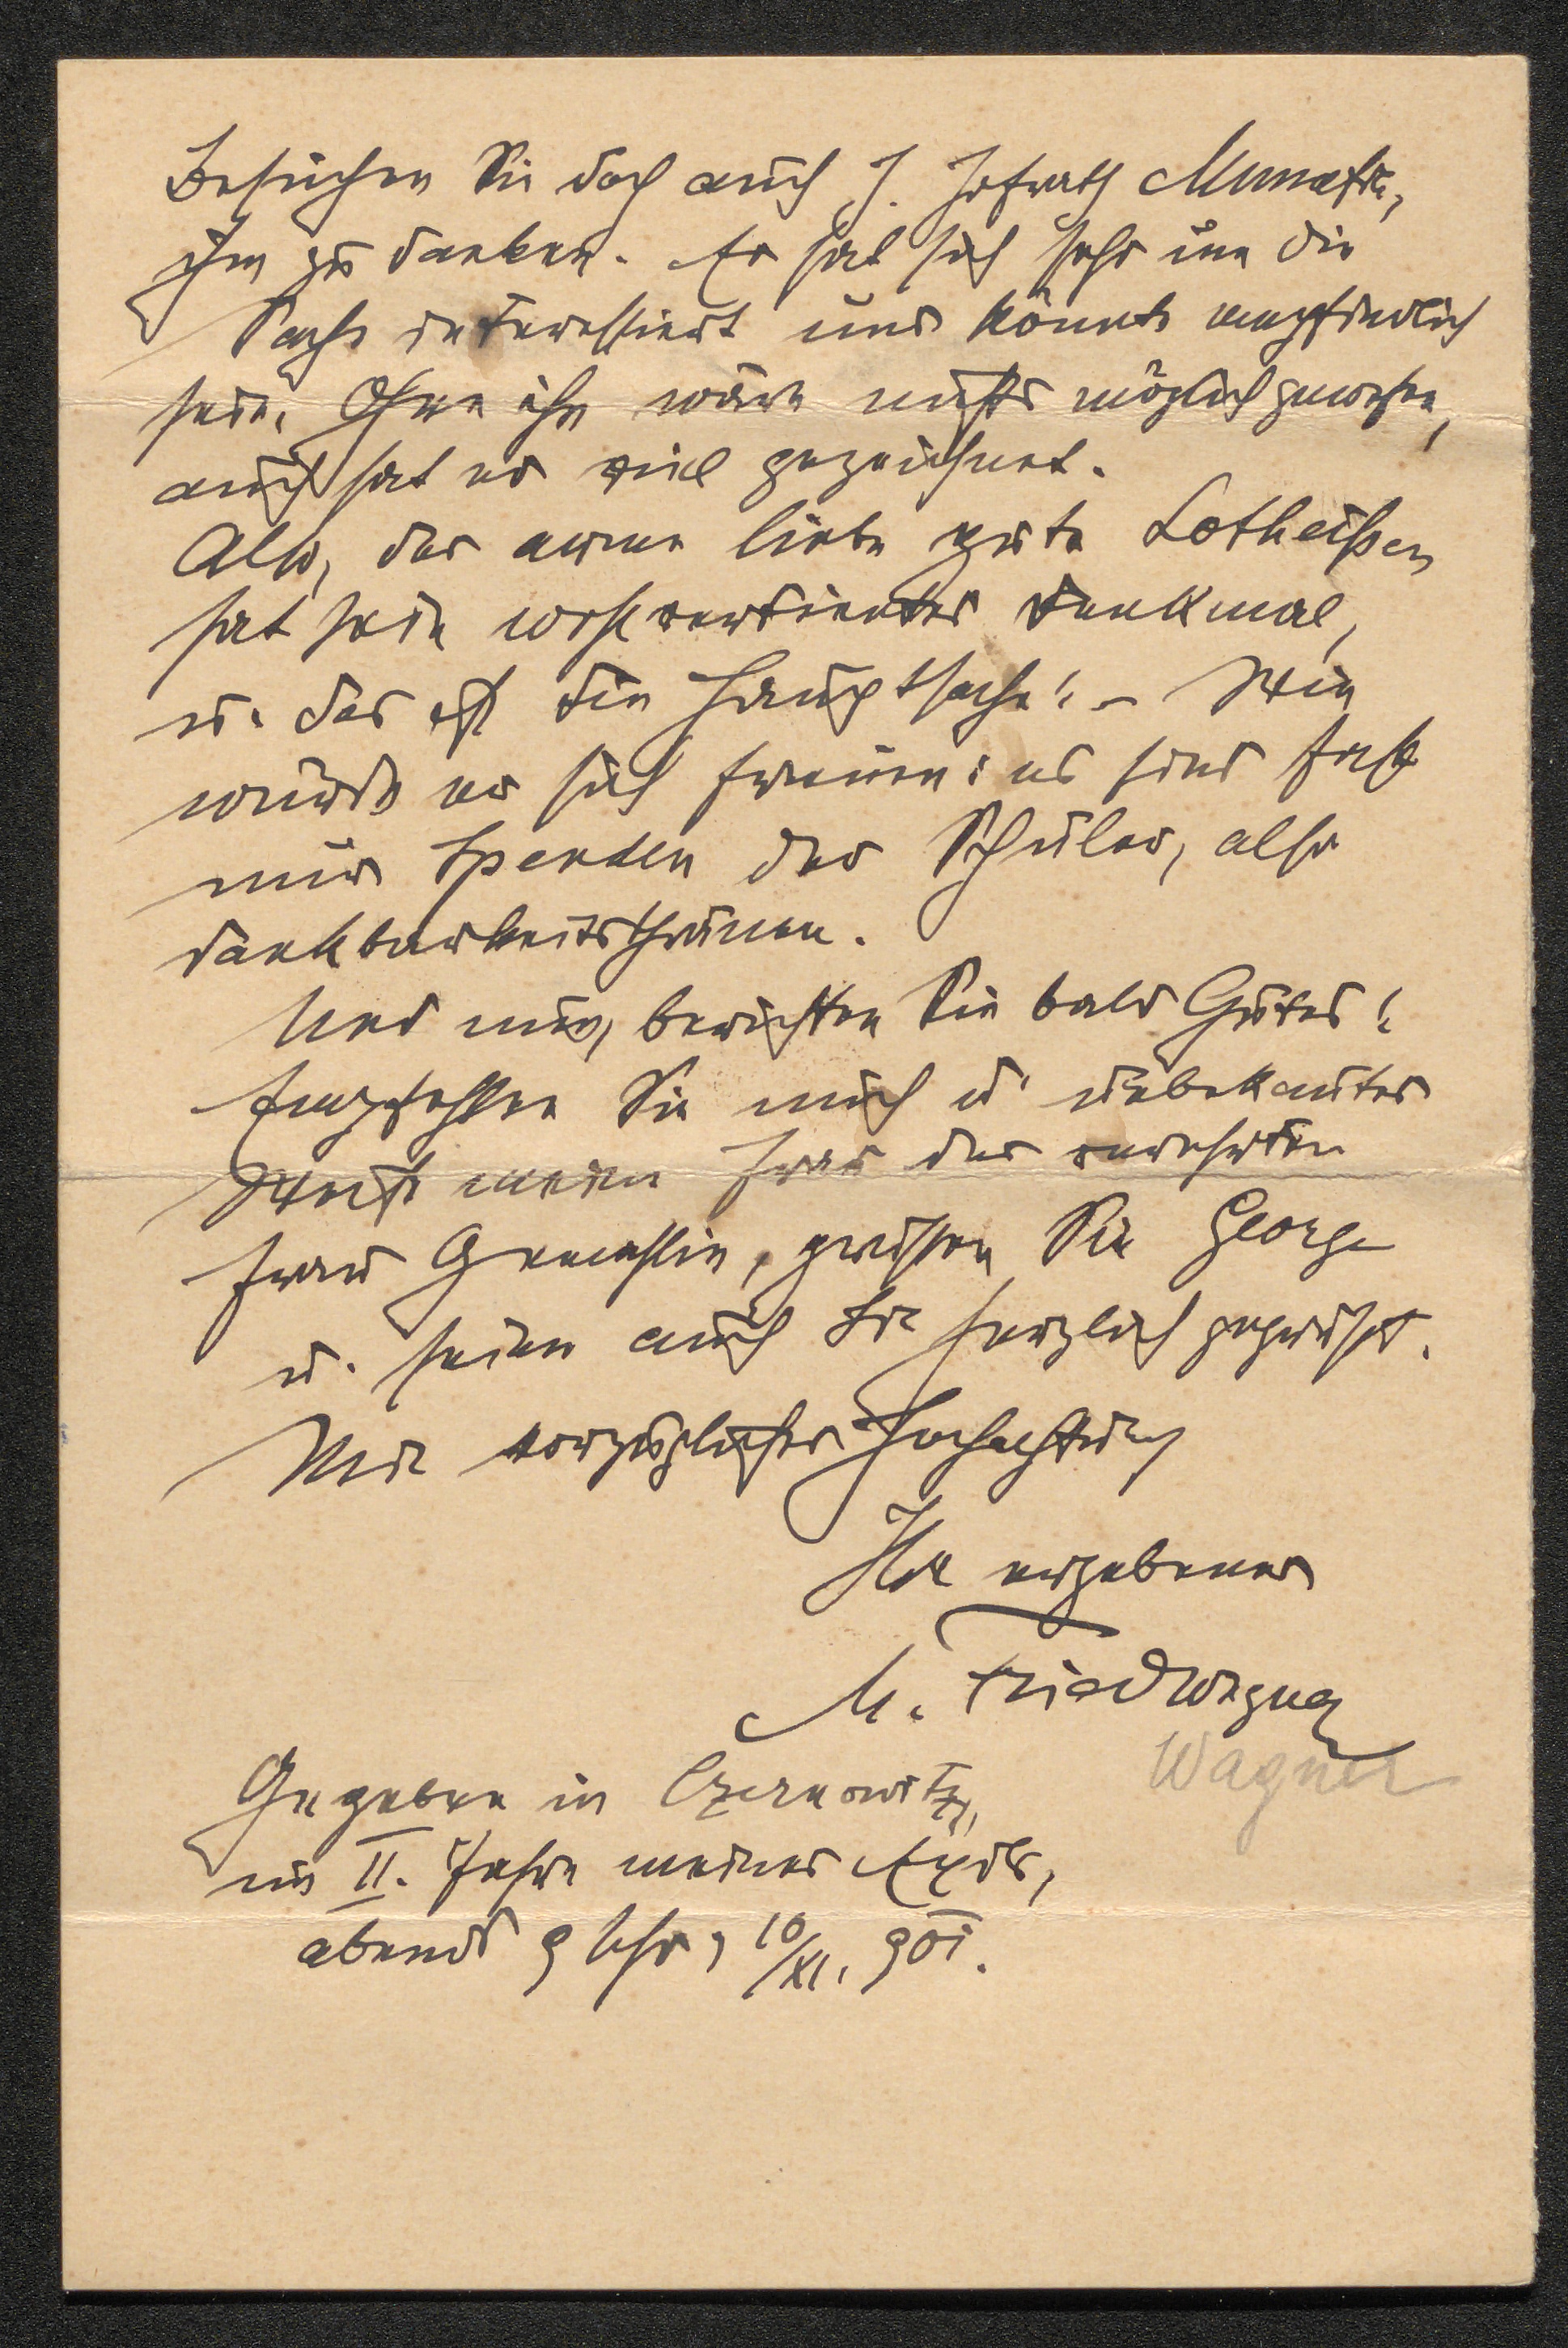 Besuchen Sie doch auch H. Hofrath Mussafia,
ihm zu danken. Er hat sich sehr um die
Sache interessiert und könnte empfindlich
sein. Ohne ihn wäre nichts möglich gewesen,
auch hat er viel gezeichnet.
Also, der arme liebe gute Lotheißen
hat sein wohlverdientes Denkmal,
u. das ist die Hauptsache! – Wie
würde er sich freuen: es sind fast
nur Spenden der Schüler, also
Dankbarkeitsthränen.
Und nun, berichten Sie bald Gutes!
Empfehlen Sie mich u. unbekannter
Weise meine Frau der verehrten
Frau Gemahlin, grüssen Sie George
u. seien auch Sie herzlich gegrüsst.
Mit vorzüglicher Hochachtung
Ihr ergebener
M. Friedwagner
Wagner
Gegeben in Czernowitz,
im II. Jahre meines Exils,
abends 9 Uhr, 10/XI. 901.